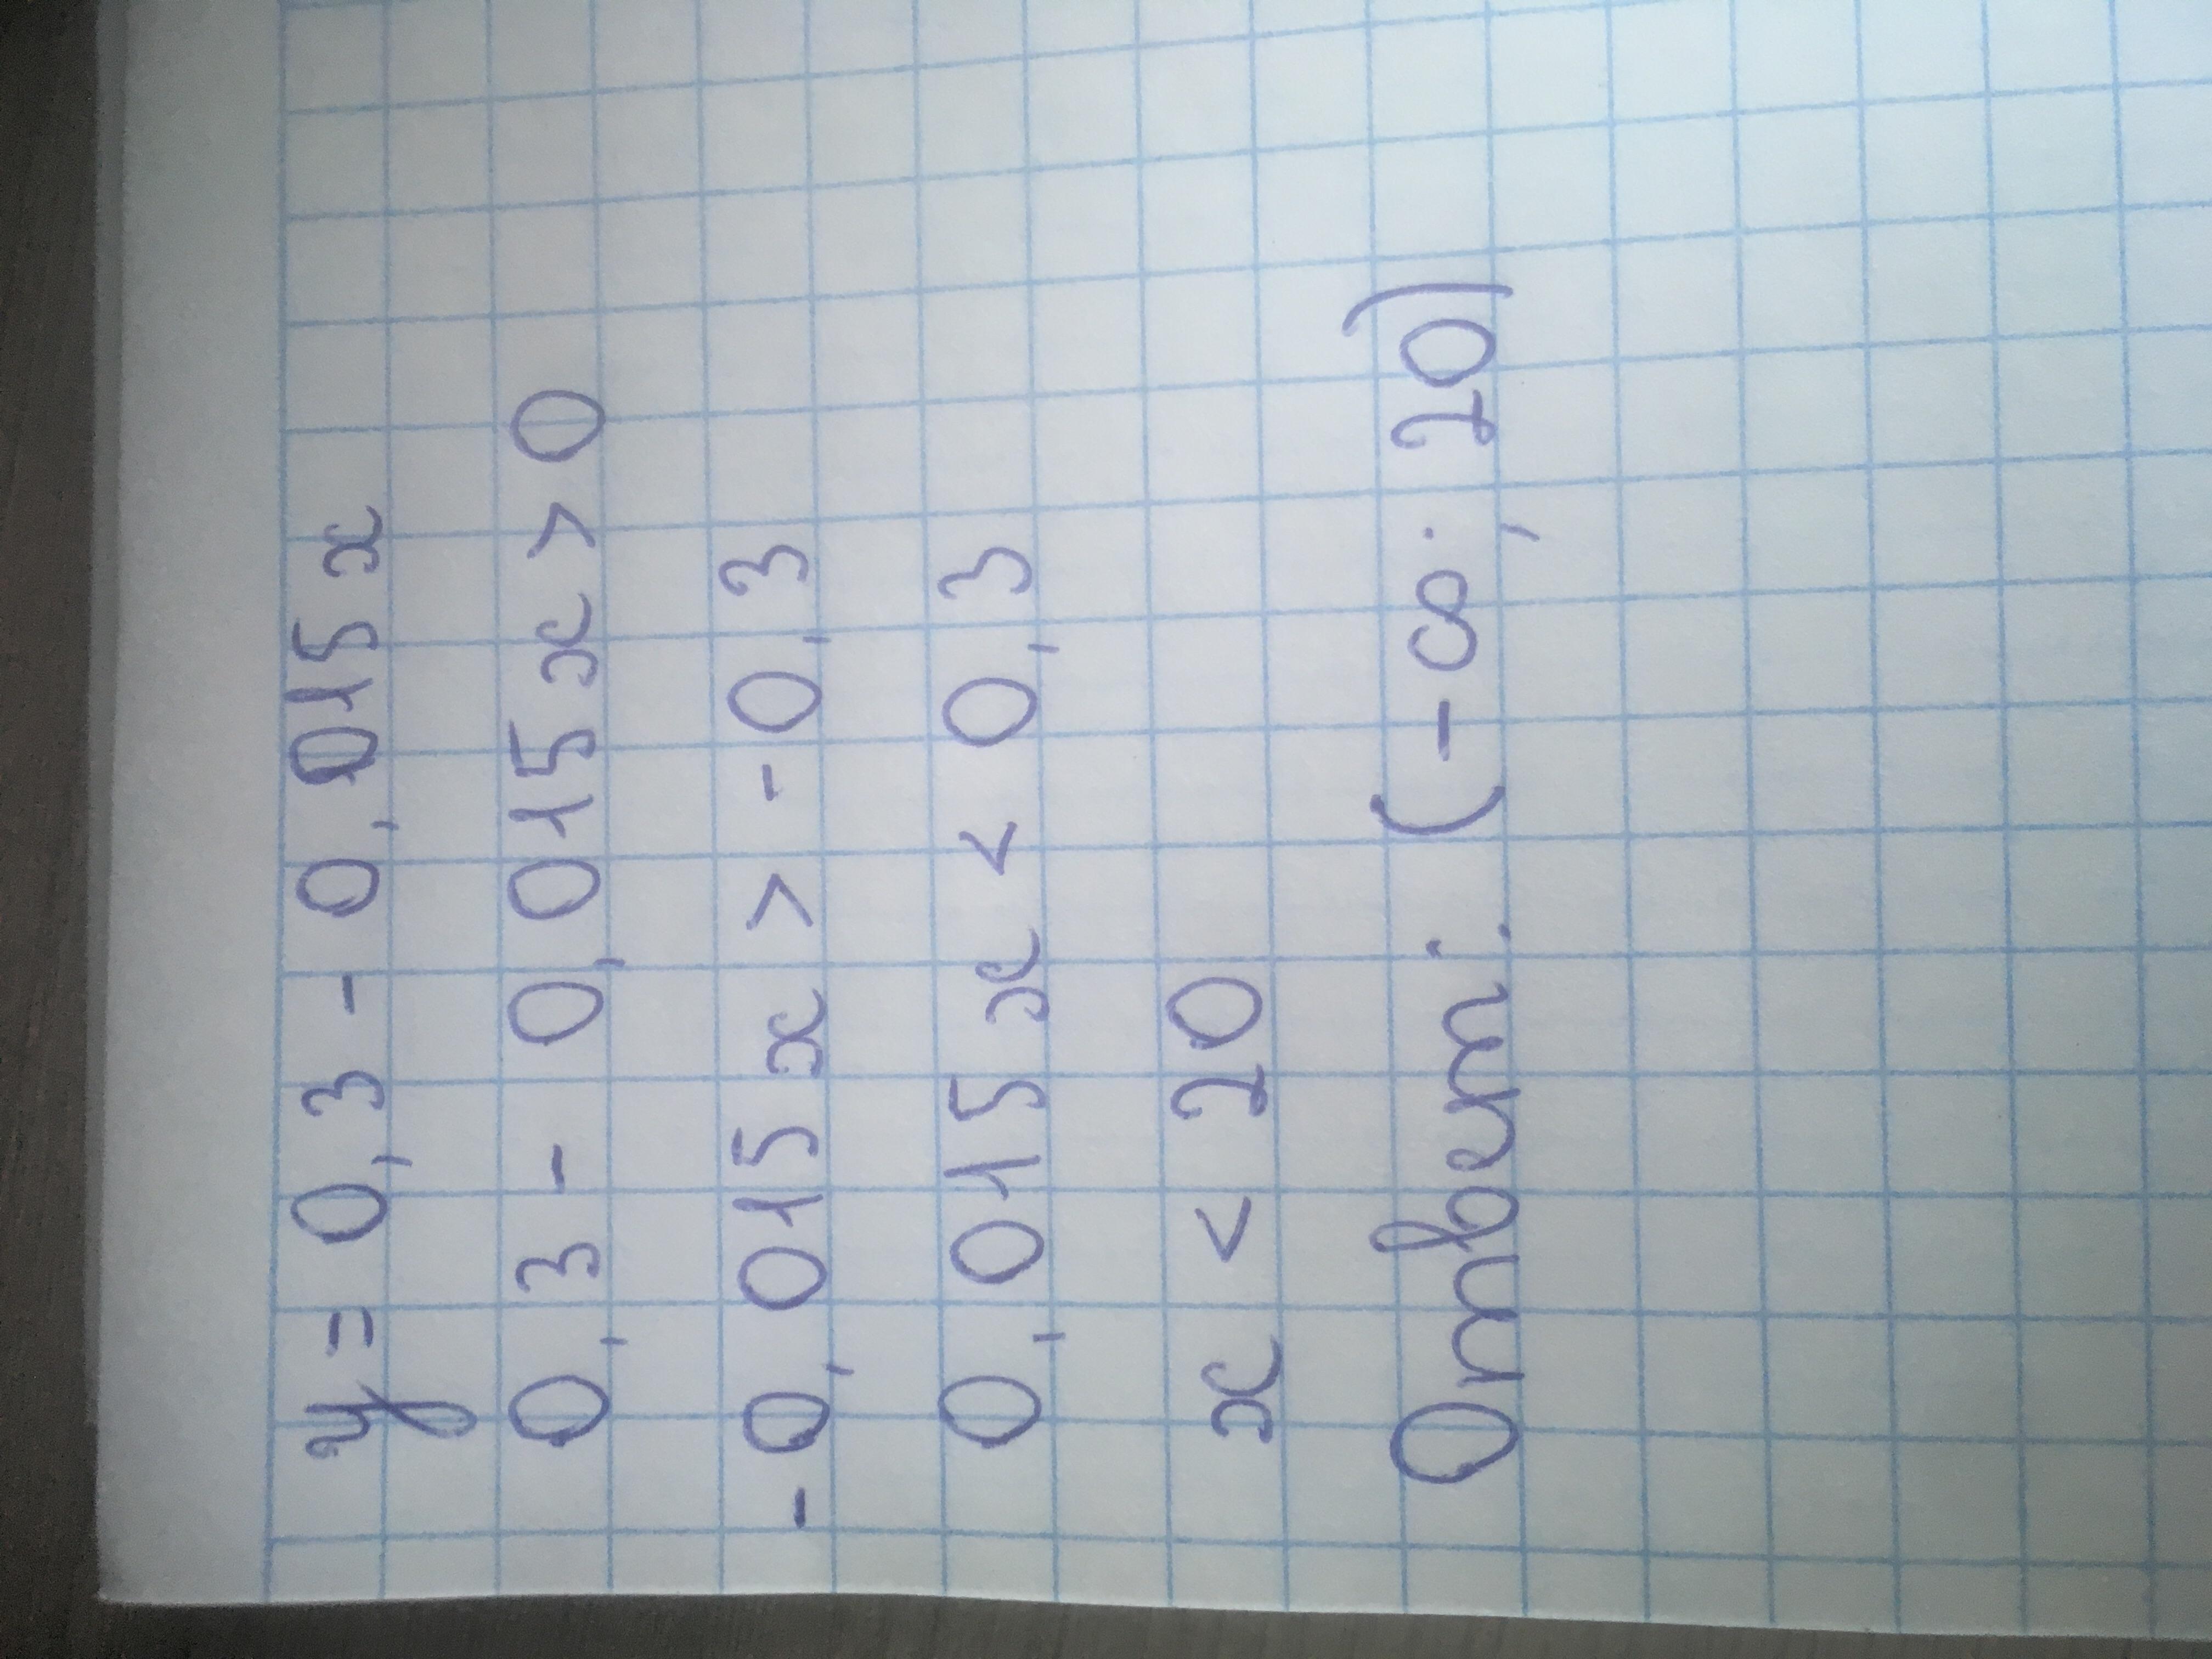 y = 0,3 - 0,015 x
0,3 - 0,015 x > 0
-0,015 x > -0,3
0,015 x < 0,3
x < 20
Ответ: (-∞; 20)